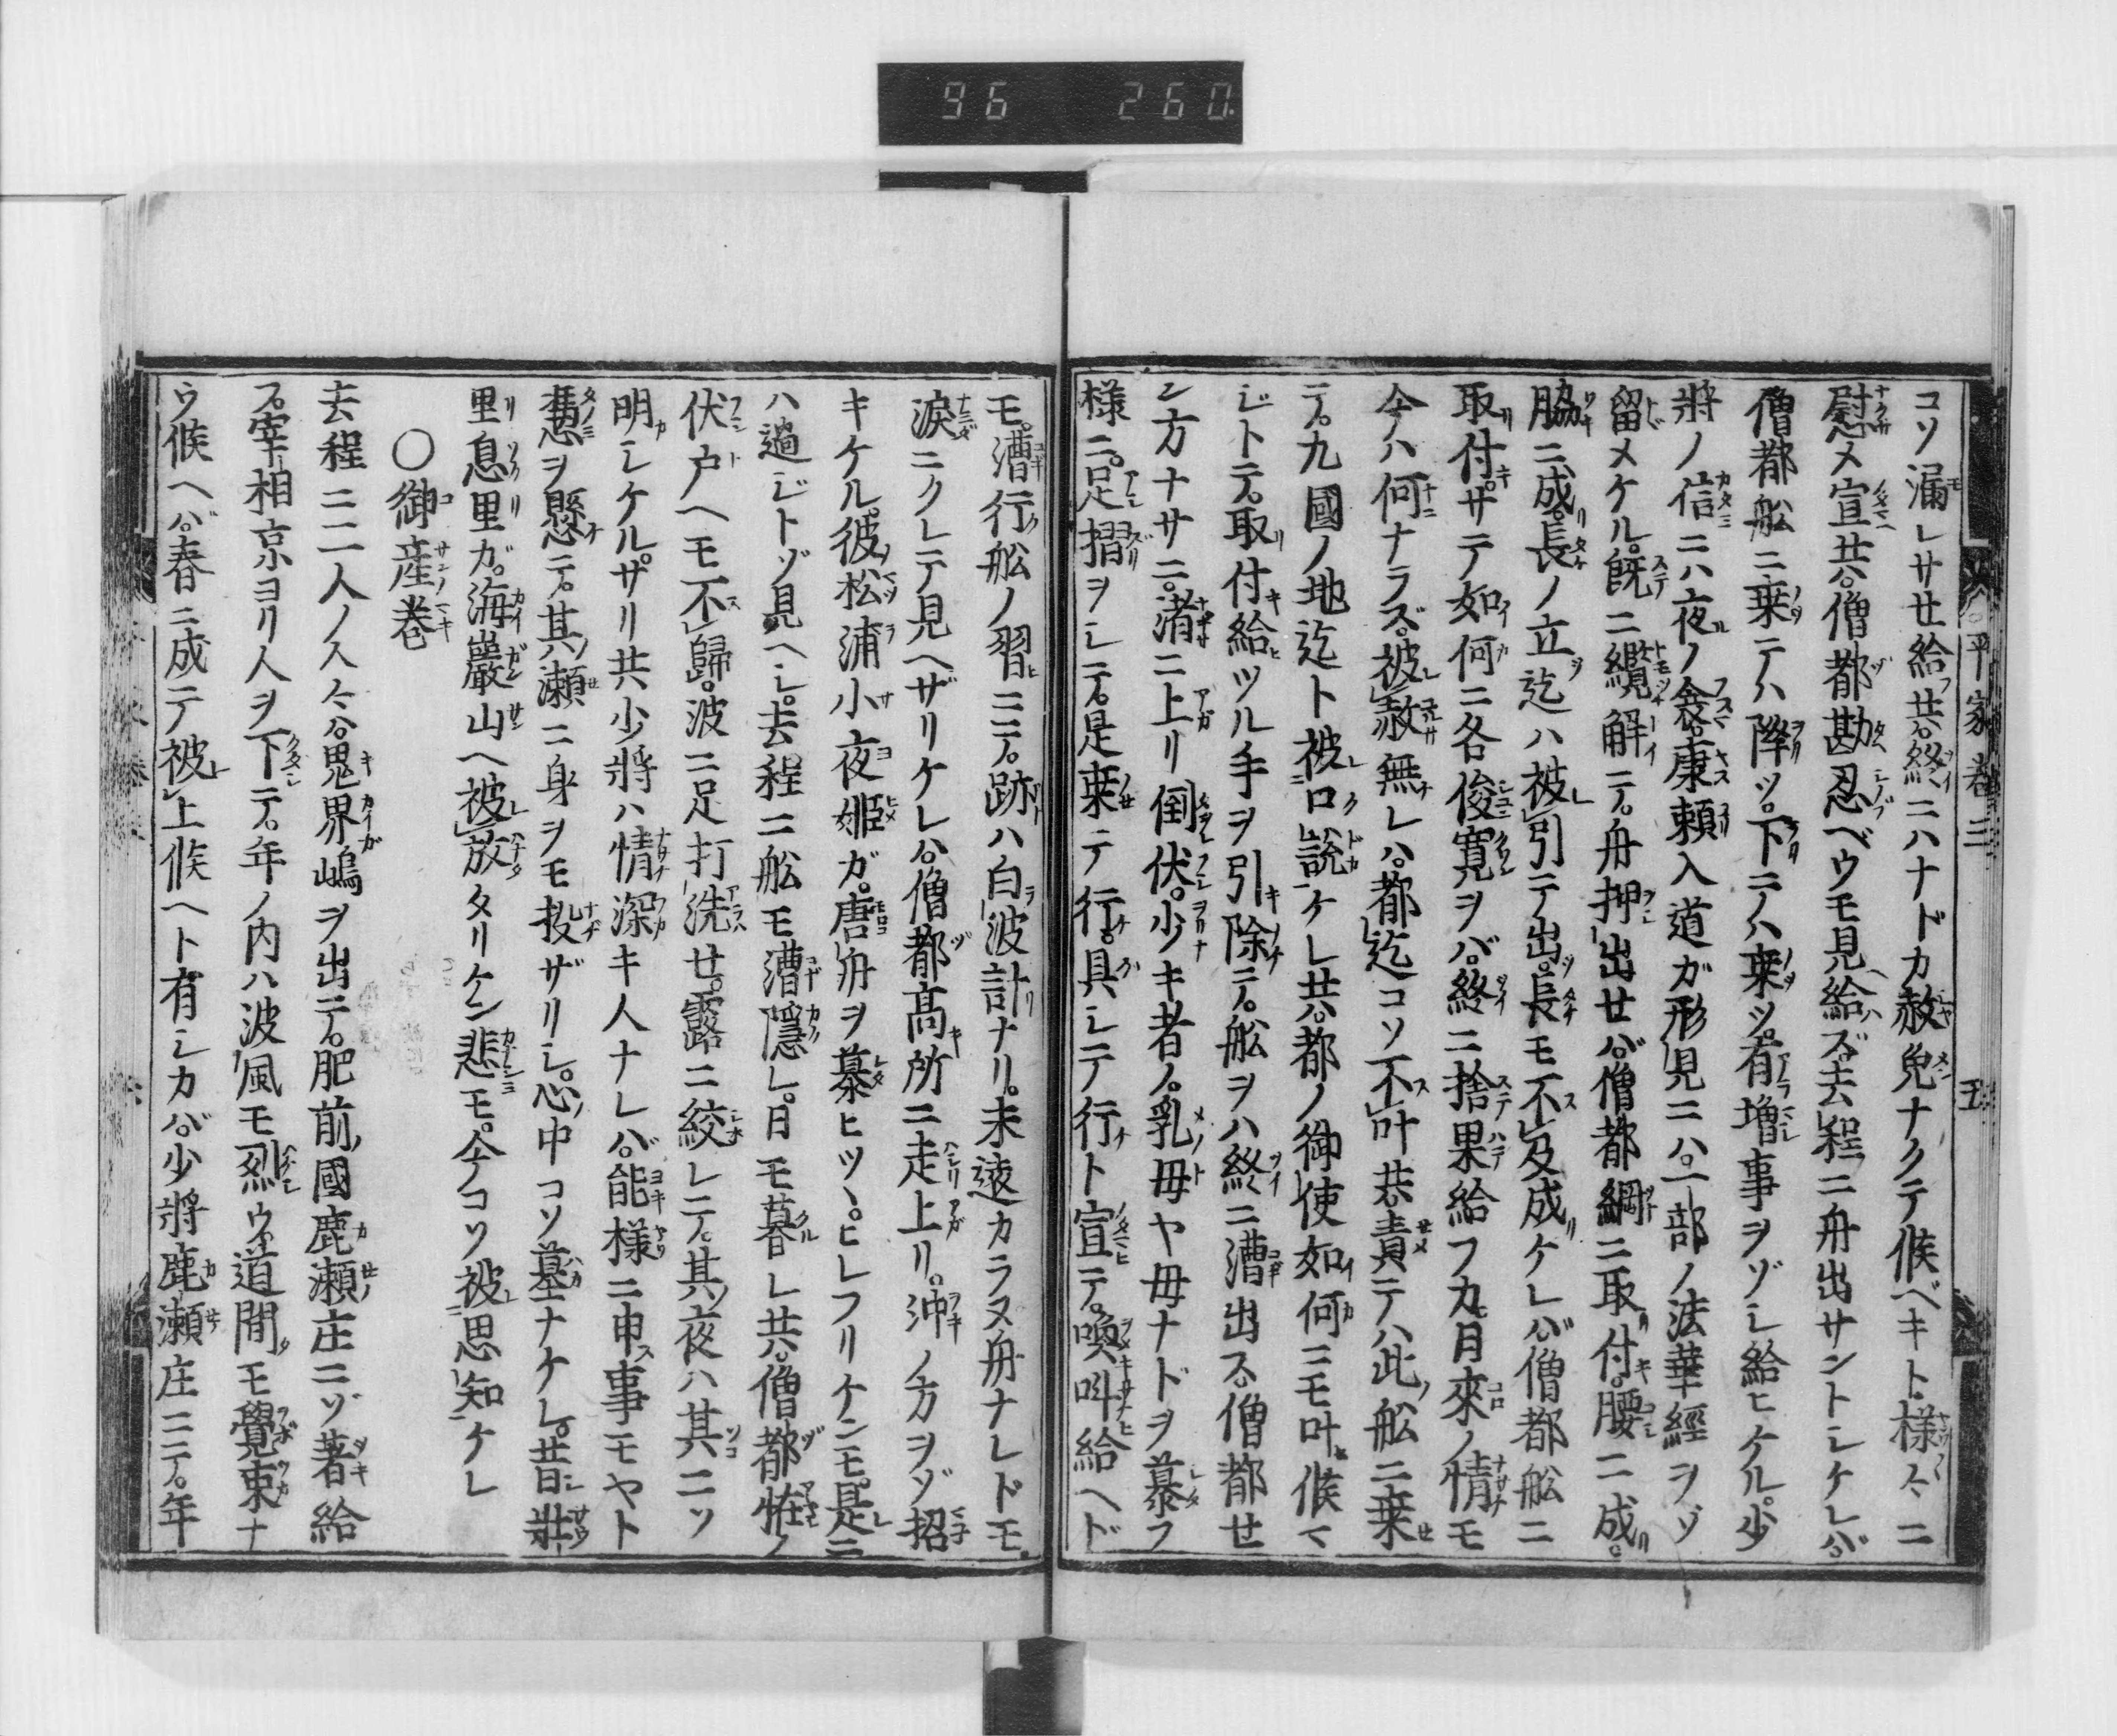 96 260.
平家巻三 五
コソ漏レサせ給フ共。終ニハナドカ赦免ナクテ候ベキト。様々ニ
慰メ宣ヘ共。僧都勘忍ベウモ見ヘ給ハズ。去程ニ舟出サントシケレバ。
僧都船ニ乗テハ降ツ。下テハ乗ツ。有増事ヲゾシ給ヒケル。少
將ノ信ニハ夜ルノ衾。康頼入道ガ形見ニハ。一部ノ法華經ヲゾ
留メケル。既ニ纜解テ。舟押出せバ。僧都綱ニ取付キ。腰ニ成リ。
脇ニ成リ。長ノ立迄ハ被引テ出。長モ不及成ケレバ。僧都船ニ
取付キ。サテ如何ニ各俊寛ヲバ。終ニ捨果給フカ。月來ノ情モ
今ハ何ナラズ。被赦無レハ。都迄コソ不叶共。責テハ此ノ船ニ乗せ
テ。九國ノ地迄ト被口説ケレ共。都ノ御使如何ニモ叶ヒ候マ
ジトテ。取付給ヒツル手ヲ引除テ。船ヲハ終ニ漕出ス。僧都せ
ン方ナサニ。渚ニ上リ倒伏。少キ者ノ。乳母ヤ母ナドヲ慕フ
様ニ。足摺ヲシテ。是乗テ行。具シテ行ト宣テ。喚叫給ヘド
モ。漕行船ノ習ヒニテ。跡ハ白波計リナリ。未遠カラヌ舟ナレドモ。
涙ニクレテ見ヘザリケレハ。僧都高キ所ニ走上リ。沖ノ方ヲゾ招
キケル。彼ノ松浦小夜姫ガ。唐舟ヲ慕ヒツヽ。ヒレフリケンモ。是ニ
ハ過ジトゾ見ヘシ。去程ニ船モ漕隱レ。日モ暮レ共。僧都恠ノ
伏戸ヘモ不歸。波ニ足打洗せ。露ニ絞レテ。其ノ夜ハ其ニソ
明シケル。サリ共少將ハ情深キ人ナレバ。能様ニ申ス事モヤト
憑ヲ懸テ。其ノ瀬ニ身ヲモ投ザリシ。心ノ中コソ墓ナケレ。昔シ壯
里息里ガ。海巖山ヘ被放タリケン悲モ。今コソ被思知ケレ
〇御産巻
去程ニ二人ノ人々ハ。鬼界嶋ヲ出テ。肥前ノ國鹿瀬庄ニゾ著給
フ。宰相京ヨリ人ヲ下テ。年ノ内ハ波風モ烈ウ。道間モ覺束ナ
ウ候ヘバ。春ニ成テ被上候ヘト有シカバ。少將鹿瀬庄ニテ。年